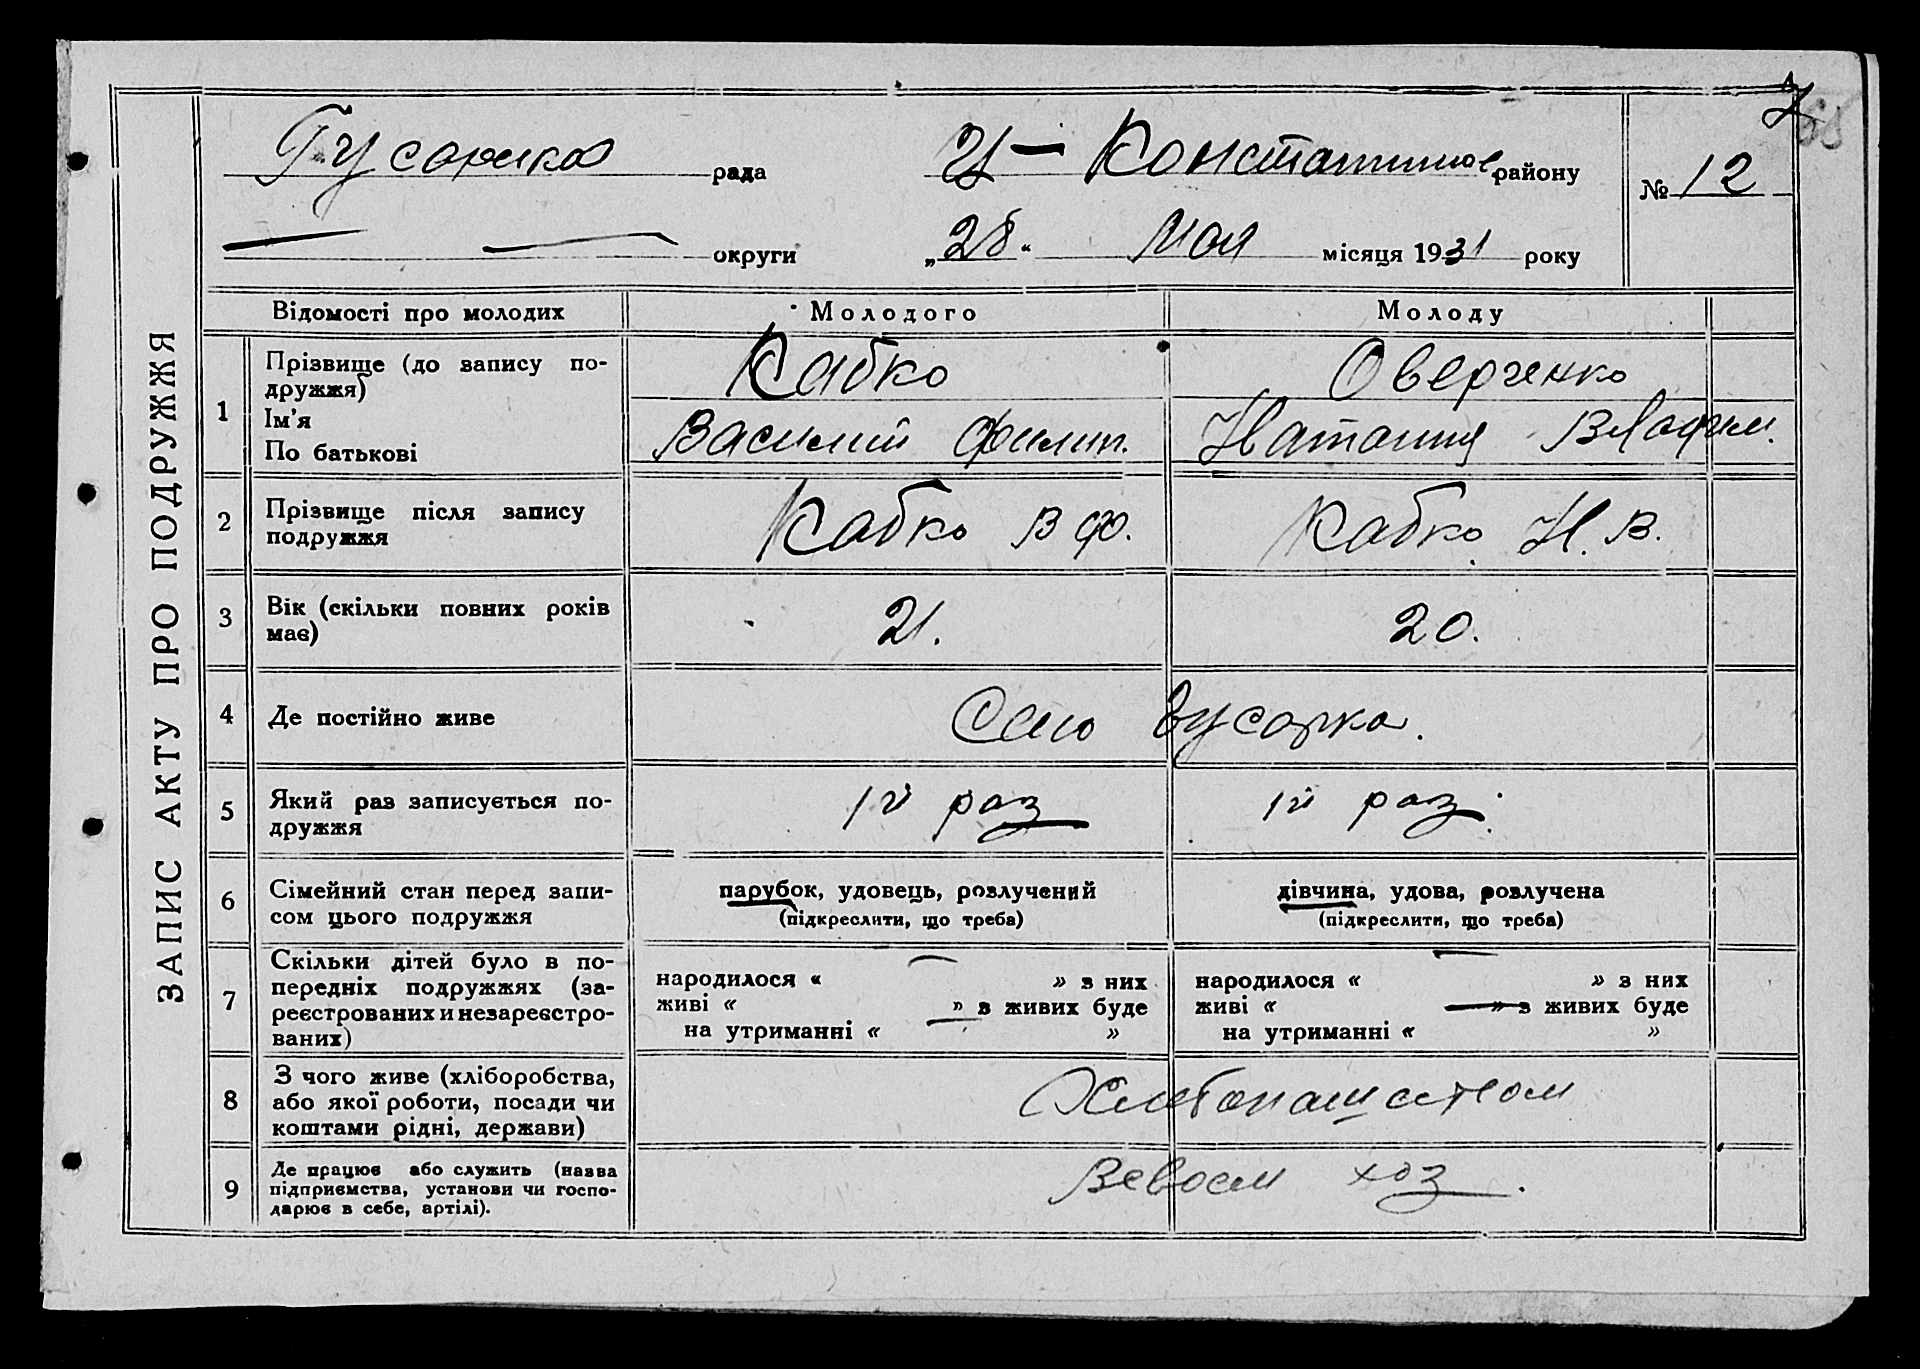 ЗАПИС АКТУ ПРО ПОДРУЖЖЯ
Гусарков рада
районy
№ 12
округи
„28“ Мая місяця 1931 року
Відомості про молодих
Молодого
Молоду
1
Прізвище (до запису по-
дружжя)
Ім'я
По батькові
Кабко
Василий Филип.
Оверченко
Наталия Владим.
2
Прізвище після запису
подружжя
Кабко В Ф.
Кабко Н. В.
3
Вік (скільки повних років
має)
21.
20.
4
Де постійно живе
Село Гусарка.
5
Який раз записується по-
дружжя
1й раз
1й раз.
6
Сімейний стан перед запи-
сом цього подружжя
парубок, удовець, розлучений
(підкреслити, що треба)
дівчина, удова, розлучена
(підкреслити, що треба)
7
Скільки дітей було в по-
передніх подружжях (за-
реєстрованих и незареєстро-
ваних)
народилося « — » з них
живі « — » з живих буде
на утриманні « »
народилося « — » з них
живі « — » з живих буде
на утриманні « »
8
З чого живе (хліборобства,
або якої роботи, посади чи
коштами рідні, держави)
Хлебопашеством
9
Де працює або служить (назва
підприємства, установи чи госпо-
дарює в себе, артілі).
Всвоем хоз.